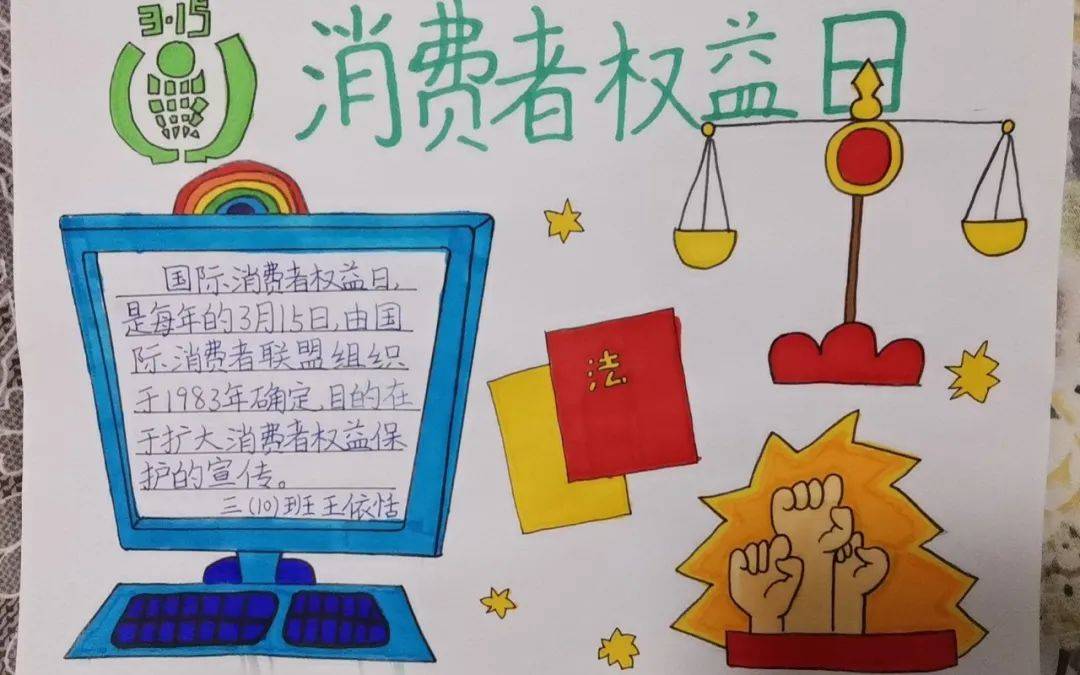 3·15
消费者权益日
国际消费者权益日,
是每年的3月15日,由国
际消费者联盟组织
于1983年确定,目的在
于扩大消费者权益保
护的宣传。
三(10)班王依恬
法